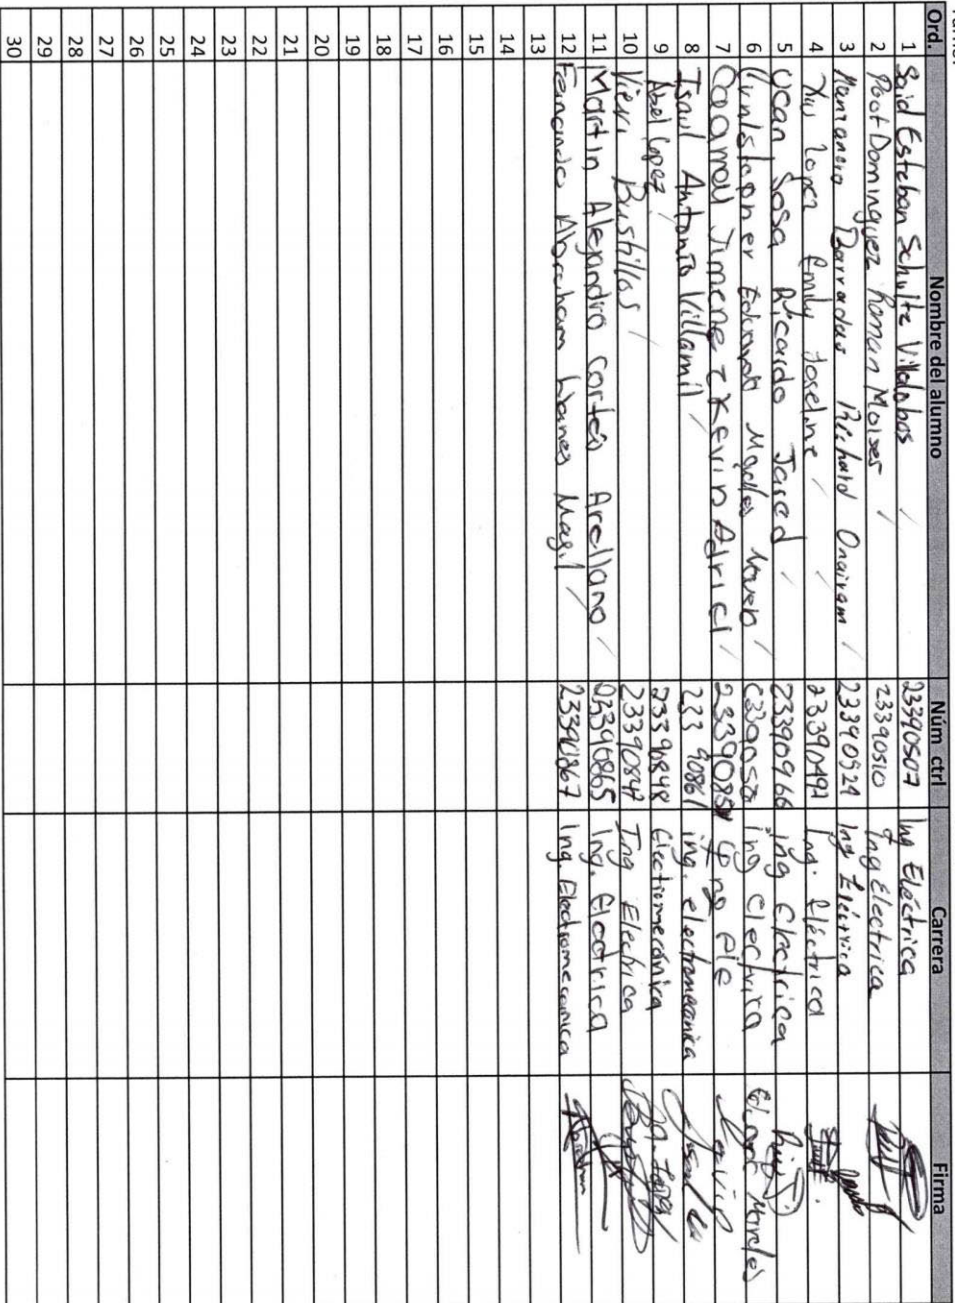 Ord. Nombre del alumno Núm ctrl Carrera Firma
1 Said Esteban Schultz Villalobos 23390507 Ing Eléctrica
2 Poot Dominguez Roman Moises 23390510 Ing Electrica
3 Manzanero Barradas Richard Onairam 23390924 Ing Eléctrica
4 Xiu Lopez Emily Joseline 23390492 Ing. Eléctrica
5 Ucan Sosa Ricardo Jared 23390966 ing Electrica
6 Eduardo ing electrica
7 Caamal Jimenez Kevin Adriel Ing ele Kevin
8 Isaul Antonio Villamil 233 90861 ing. electromecanica
9 Abel Lopez 23390848 Electromecánica
10 Vieri Bustillos 23390842 Ing Electrica
11 Martin Alejandro Cortés Arellano 23390865 Ing. Electrica
12 Fernando Abraham 23390867 Ing. Electromecanica
13
14
15
16
17
18
19
20
21
22
23
24
25
26
27
28
29
30